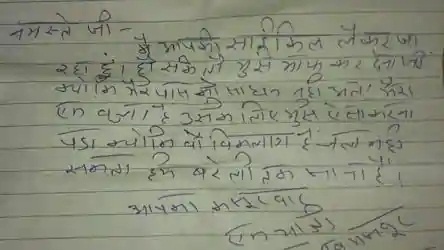 नमस्ते जी -
मै आपकी साईकिल लेकर जा
रहा हूं। हो सके तो मुझे माफ कर देना जी
क्योंकि मेरे पास कोई साधन नही था। मेरा
एक बच्चा है उसके लिए मुझे ऐसा करना
पड़ा क्योंकि वो विकलांग है चल नही
सकता हमे बरेली तक जाना है।
आपका
एक यात्री
मजदूर